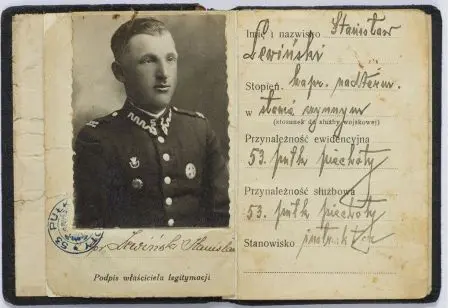 Imię i nazwisko Stanisław
Lewiński
Stopień. kapr. nadterm.
w stanie czynnym
(stosunek do służby wojskowej)
Przynależność ewidencyjna
53. pułk piechoty
Przynależność służbowa
53. pułk piechoty
Stanowisko
53 PUŁK
Lewiński Stanisław
Podpis właściciela legitymacji